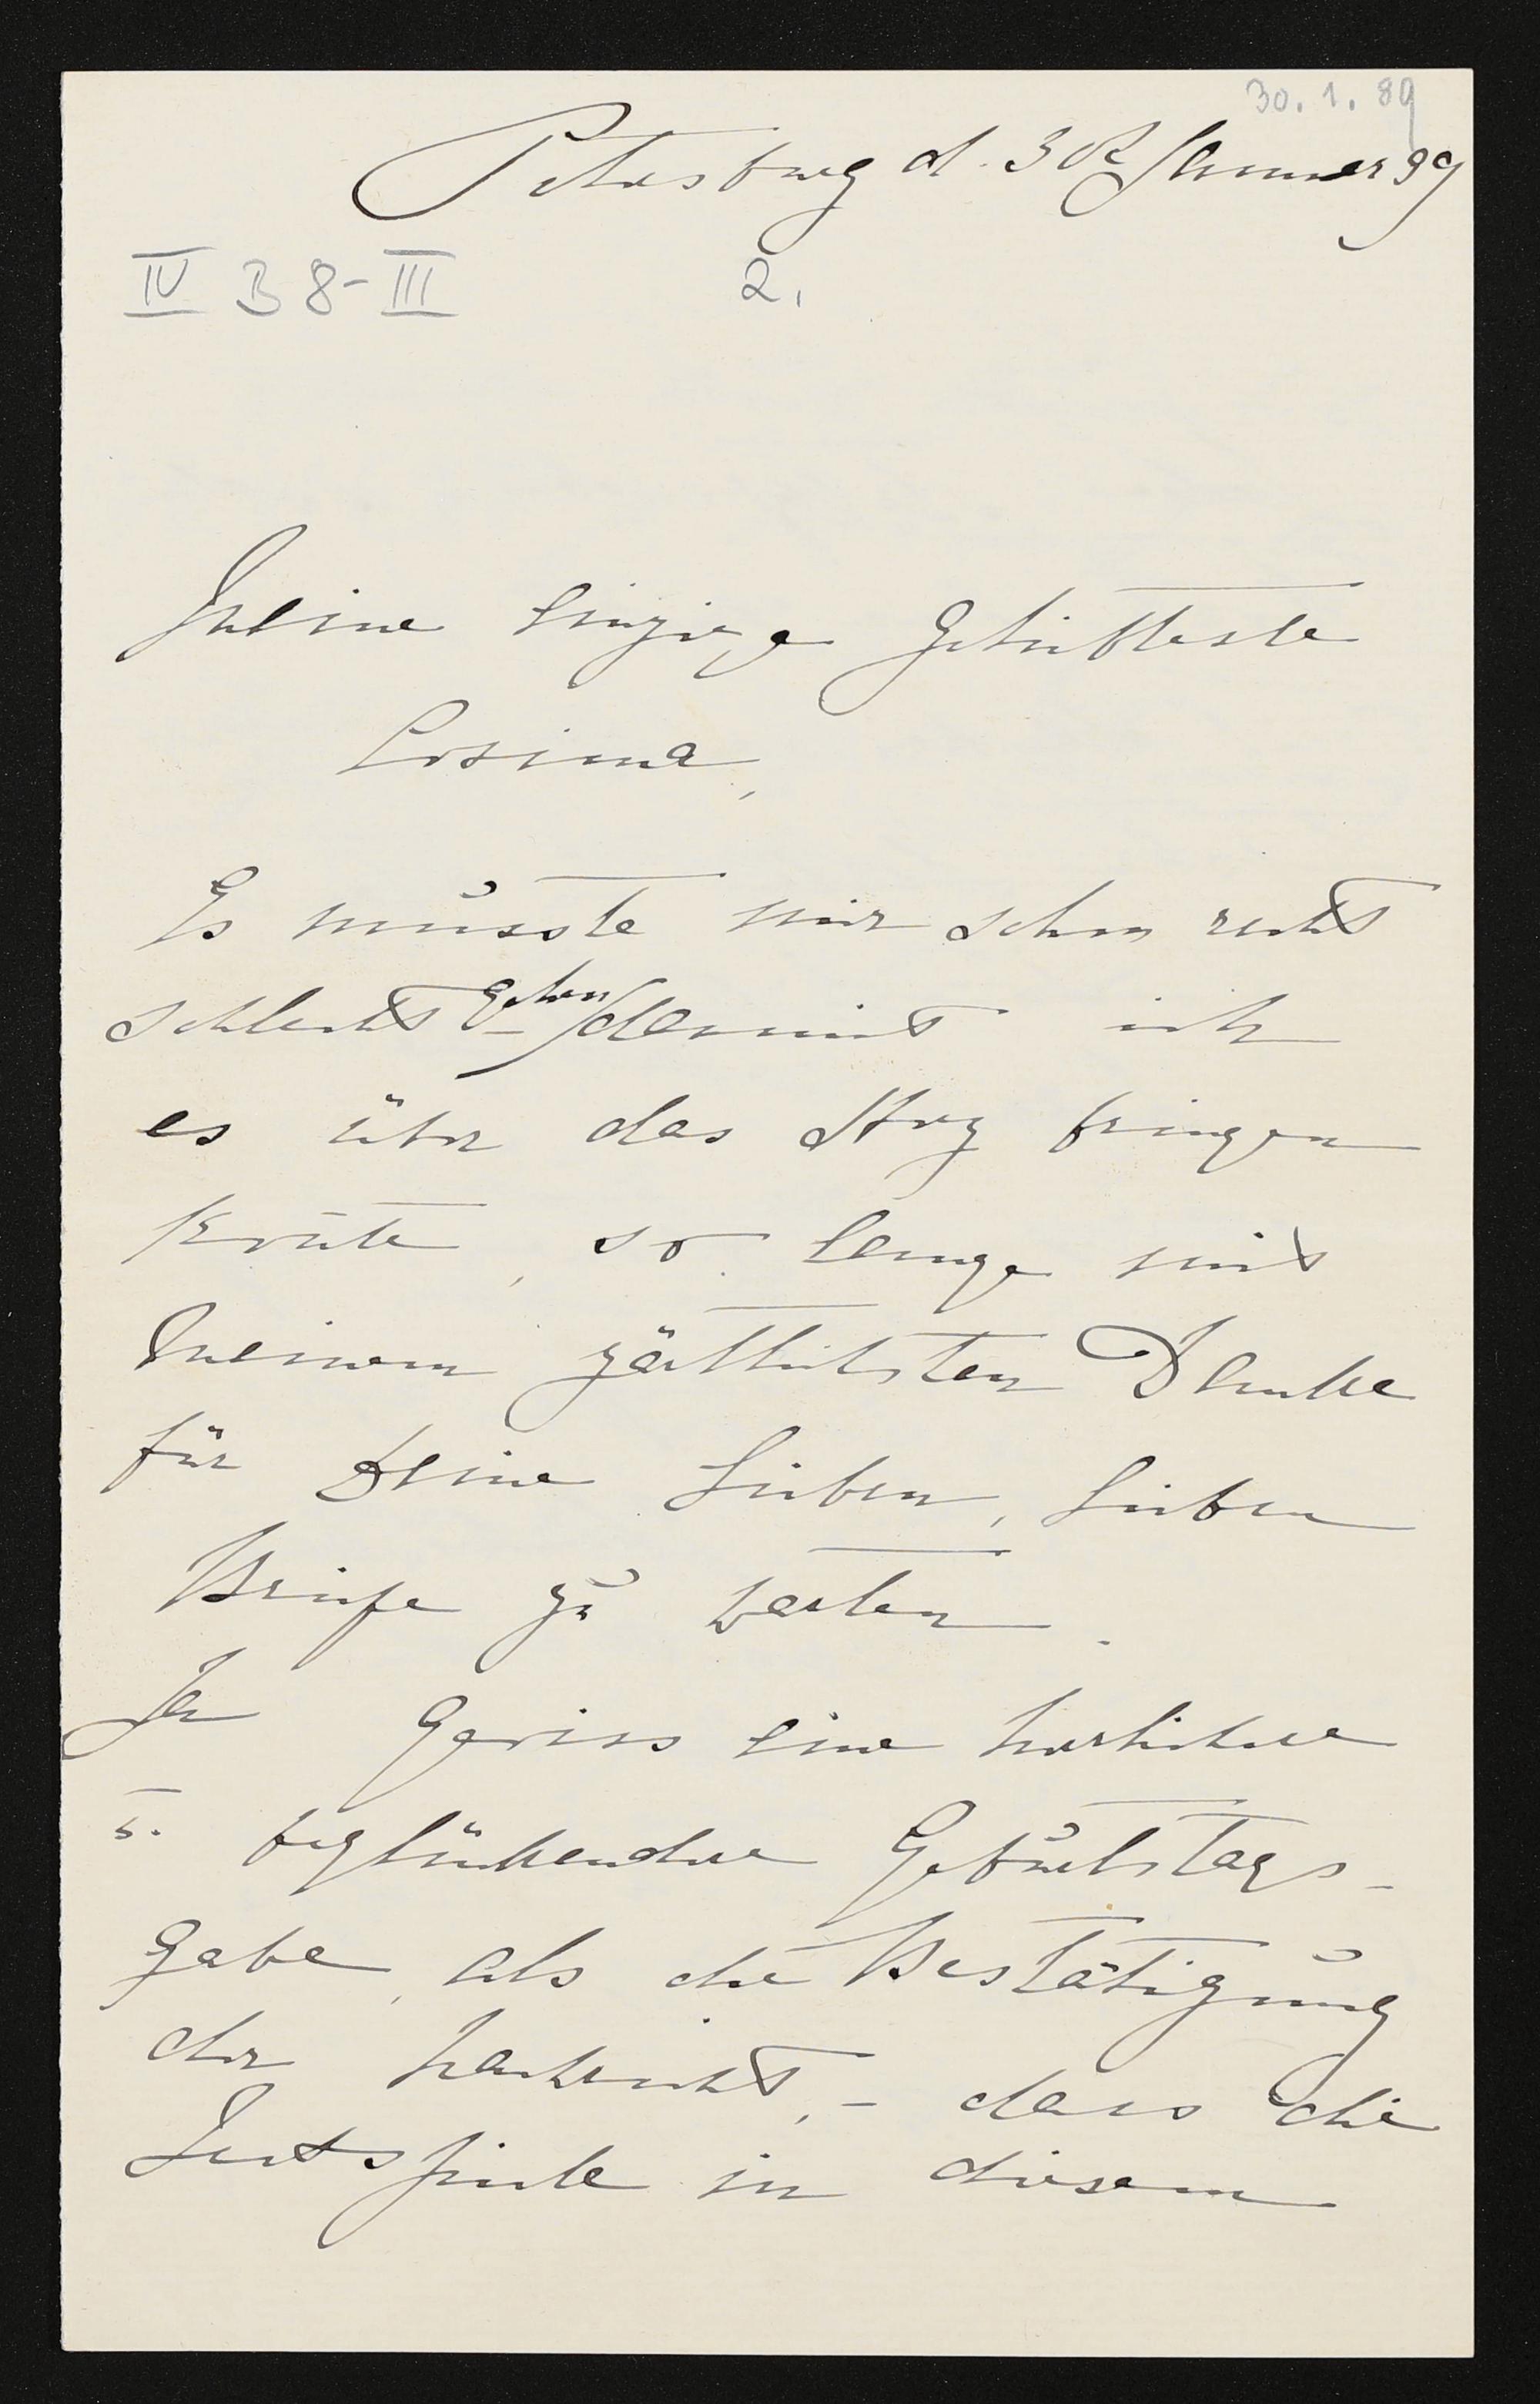 30. 1. 89
Petersburg d. 30t Januar 89
IV B 8-III 2.
Meine einzige Geliebteste
Cosima,
Es müsste mir schon recht
schlecht gehen damit ich
es über das Herz bringen
könnte, so lange mit
meinem zärtlichsten Danke
für Deine lieben, lieben
Briefe zu warten.
Ja gewiss eine herrlichere
u. beglückendere Geburtstags-
gabe, als die Bestätigung
der Nachricht, - dass die
Festspiele in diesem